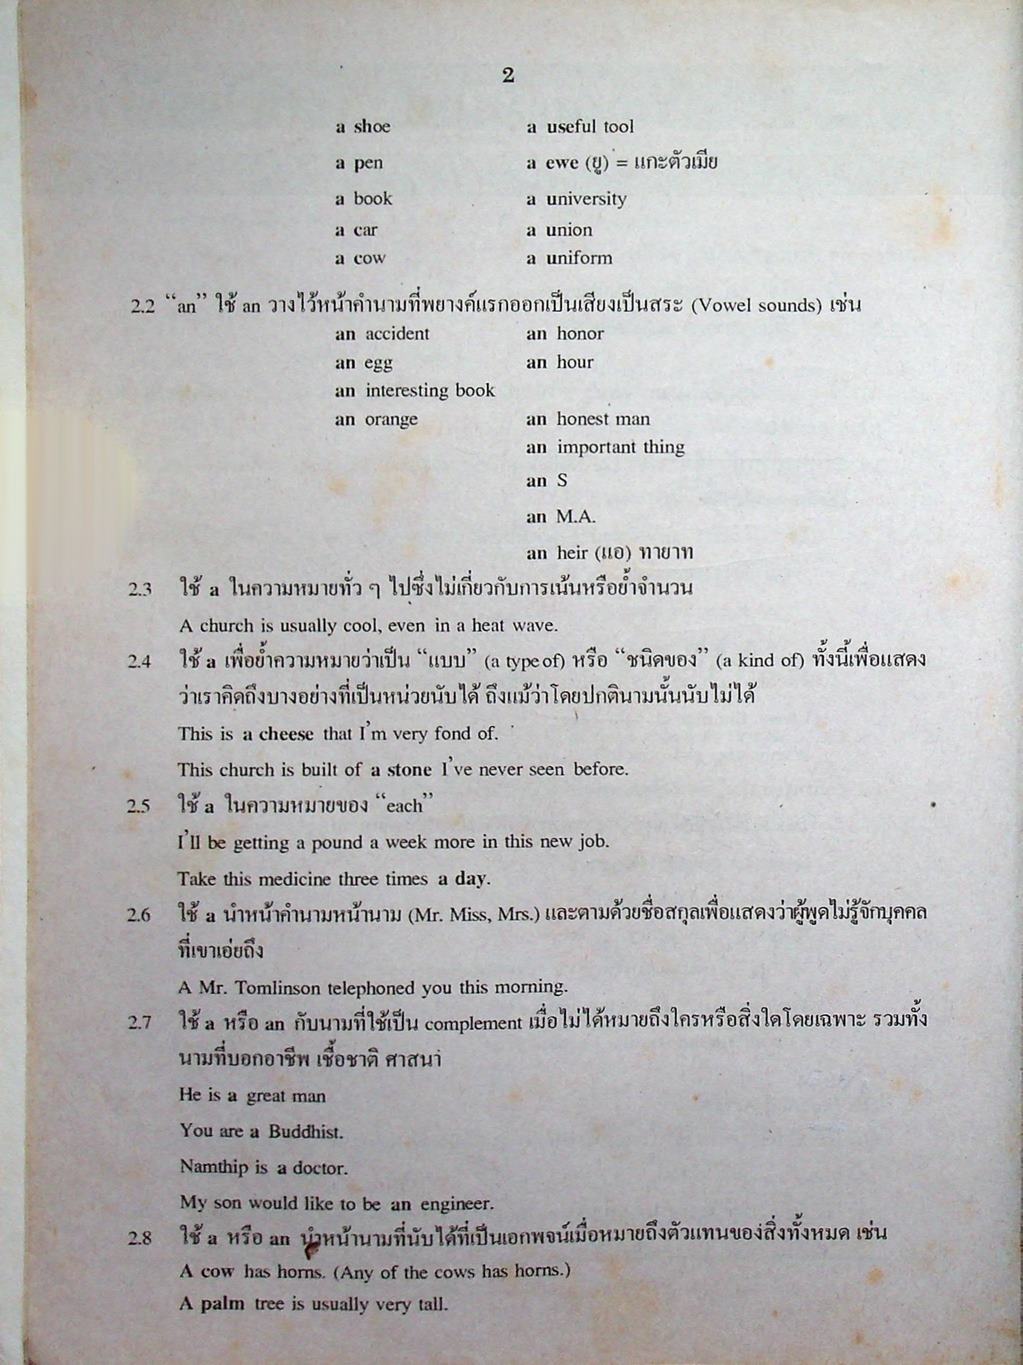 2
a shoe a useful tool
a pen a ewe (ยู) = แกะตัวเมีย
a book a university
a car a union
a cow a uniform
2.2 “an” ใช้ an วางไว้หน้าคำนามที่พยางค์แรกออกเป็นเสียงเป็นสระ (Vowel sounds) เช่น
an accident an honor
an egg an hour
an interesting book
an orange an honest man
an important thing
an S
an M.A.
an heir (แอ) ทายาท
2.3 ใช้ a ในความหมายทั่ว ๆ ไปซึ่งไม่เกี่ยวกับการเน้นหรือย้ำจำนวน
A church is usually cool, even in a heat wave.
2.4 ใช้ a เพื่อย้ำความหมายว่าเป็น “แบบ” (a type of) หรือ “ชนิดของ” (a kind of) ทั้งนี้เพื่อแสดง
ว่าเราคิดถึงบางอย่างที่เป็นหน่วยนับได้ ถึงแม้ว่าโดยปกตินามนั้นนับไม่ได้
This is a cheese that I'm very fond of.
This church is built of a stone I've never seen before.
2.5 ใช้ a ในความหมายของ “each”
I'll be getting a pound a week more in this new job.
Take this medicine three times a day.
2.6 ใช้ a นำหน้าคำนามหน้านาม (Mr. Miss, Mrs.) และตามด้วยชื่อสกุลเพื่อแสดงว่าผู้พูดไม่รู้จักบุคคล
ที่เขาเอ่ยถึง
A Mr. Tomlinson telephoned you this morning.
2.7 ใช้ a หรือ an กับนามที่ใช้เป็น complement เมื่อไม่ได้หมายถึงใครหรือสิ่งใดโดยเฉพาะ รวมทั้ง
นามที่บอกอาชีพ เชื้อชาติ ศาสนา
He is a great man
You are a Buddhist.
Namthip is a doctor.
My son would like to be an engineer.
2.8 ใช้ a หรือ an นำหน้านามที่นับได้ที่เป็นเอกพจน์เมื่อหมายถึงตัวแทนของสิ่งทั้งหมด เช่น
A cow has horns. (Any of the cows has horns.)
A palm tree is usually very tall.